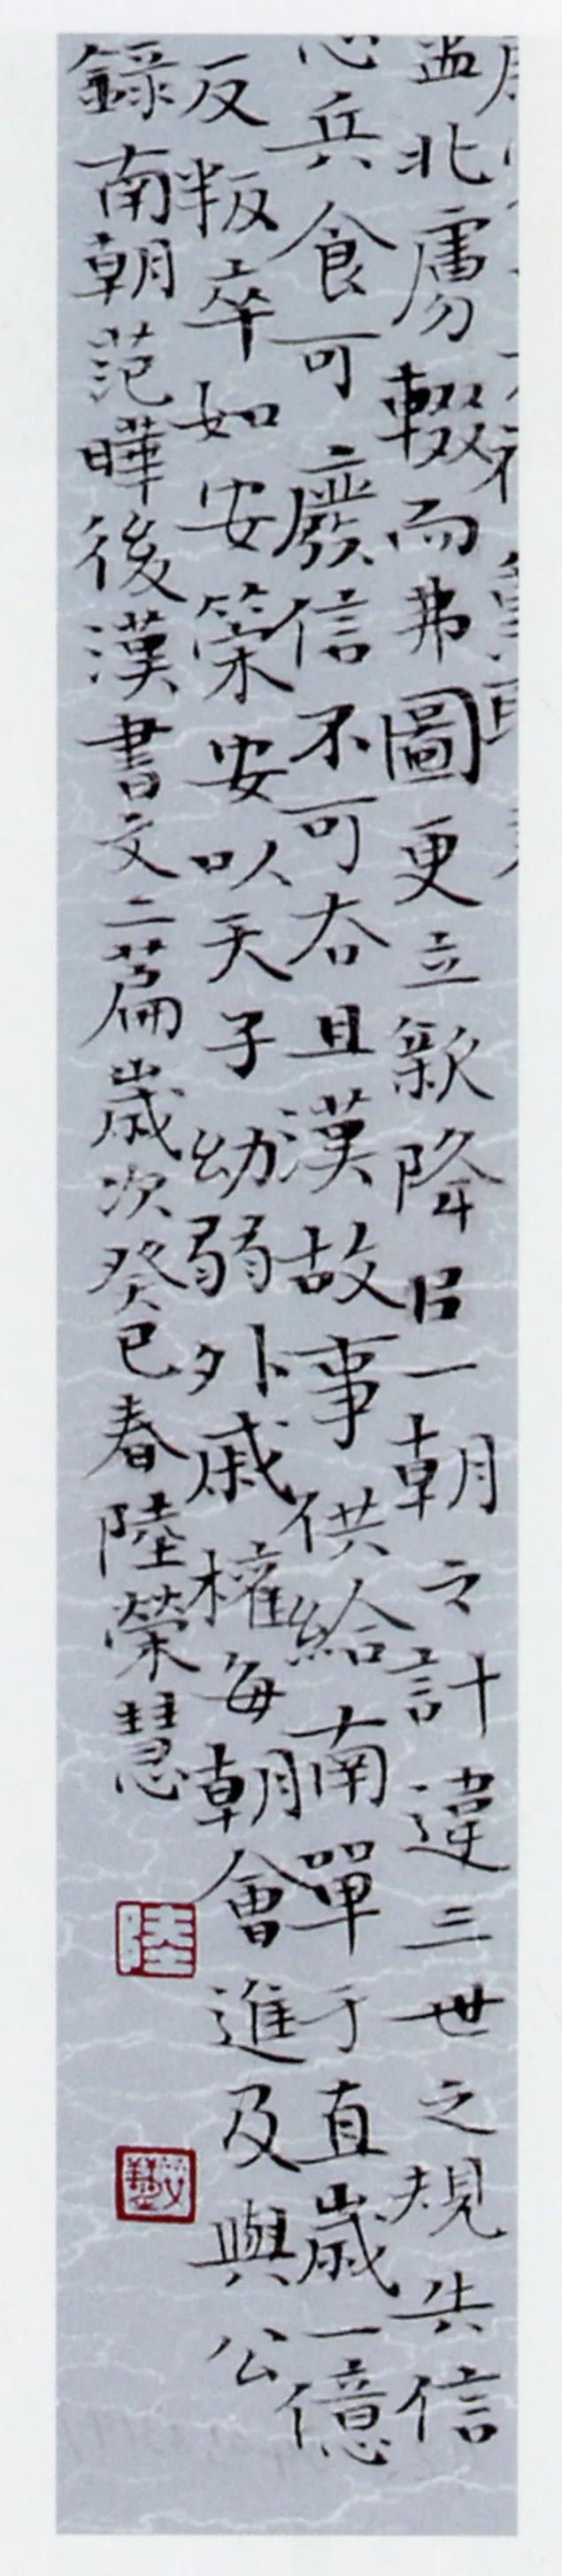 北虜輟而弗圖更立新降㠯一朝之計違三世之規失信
兵食可廢信不可去且漢故事供給南單于直歲一億
反叛卒如安策安以天子幼弱外戚權每朝會進及與公
錄南朝范曄後漢書文二篇歲次癸巳春陸榮慧
陸